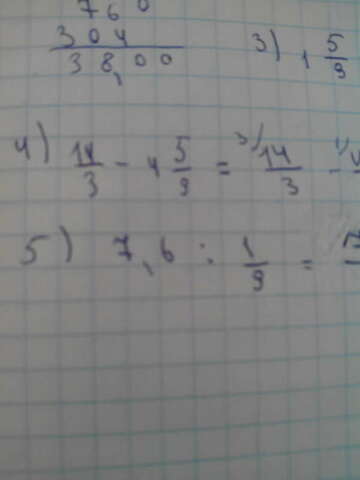 760
304
38,00
3) 1 5/9
4) 14/3 - 4 5/9 = 3/ 14/3 - 1/
5) 7,6 : 1/9 =